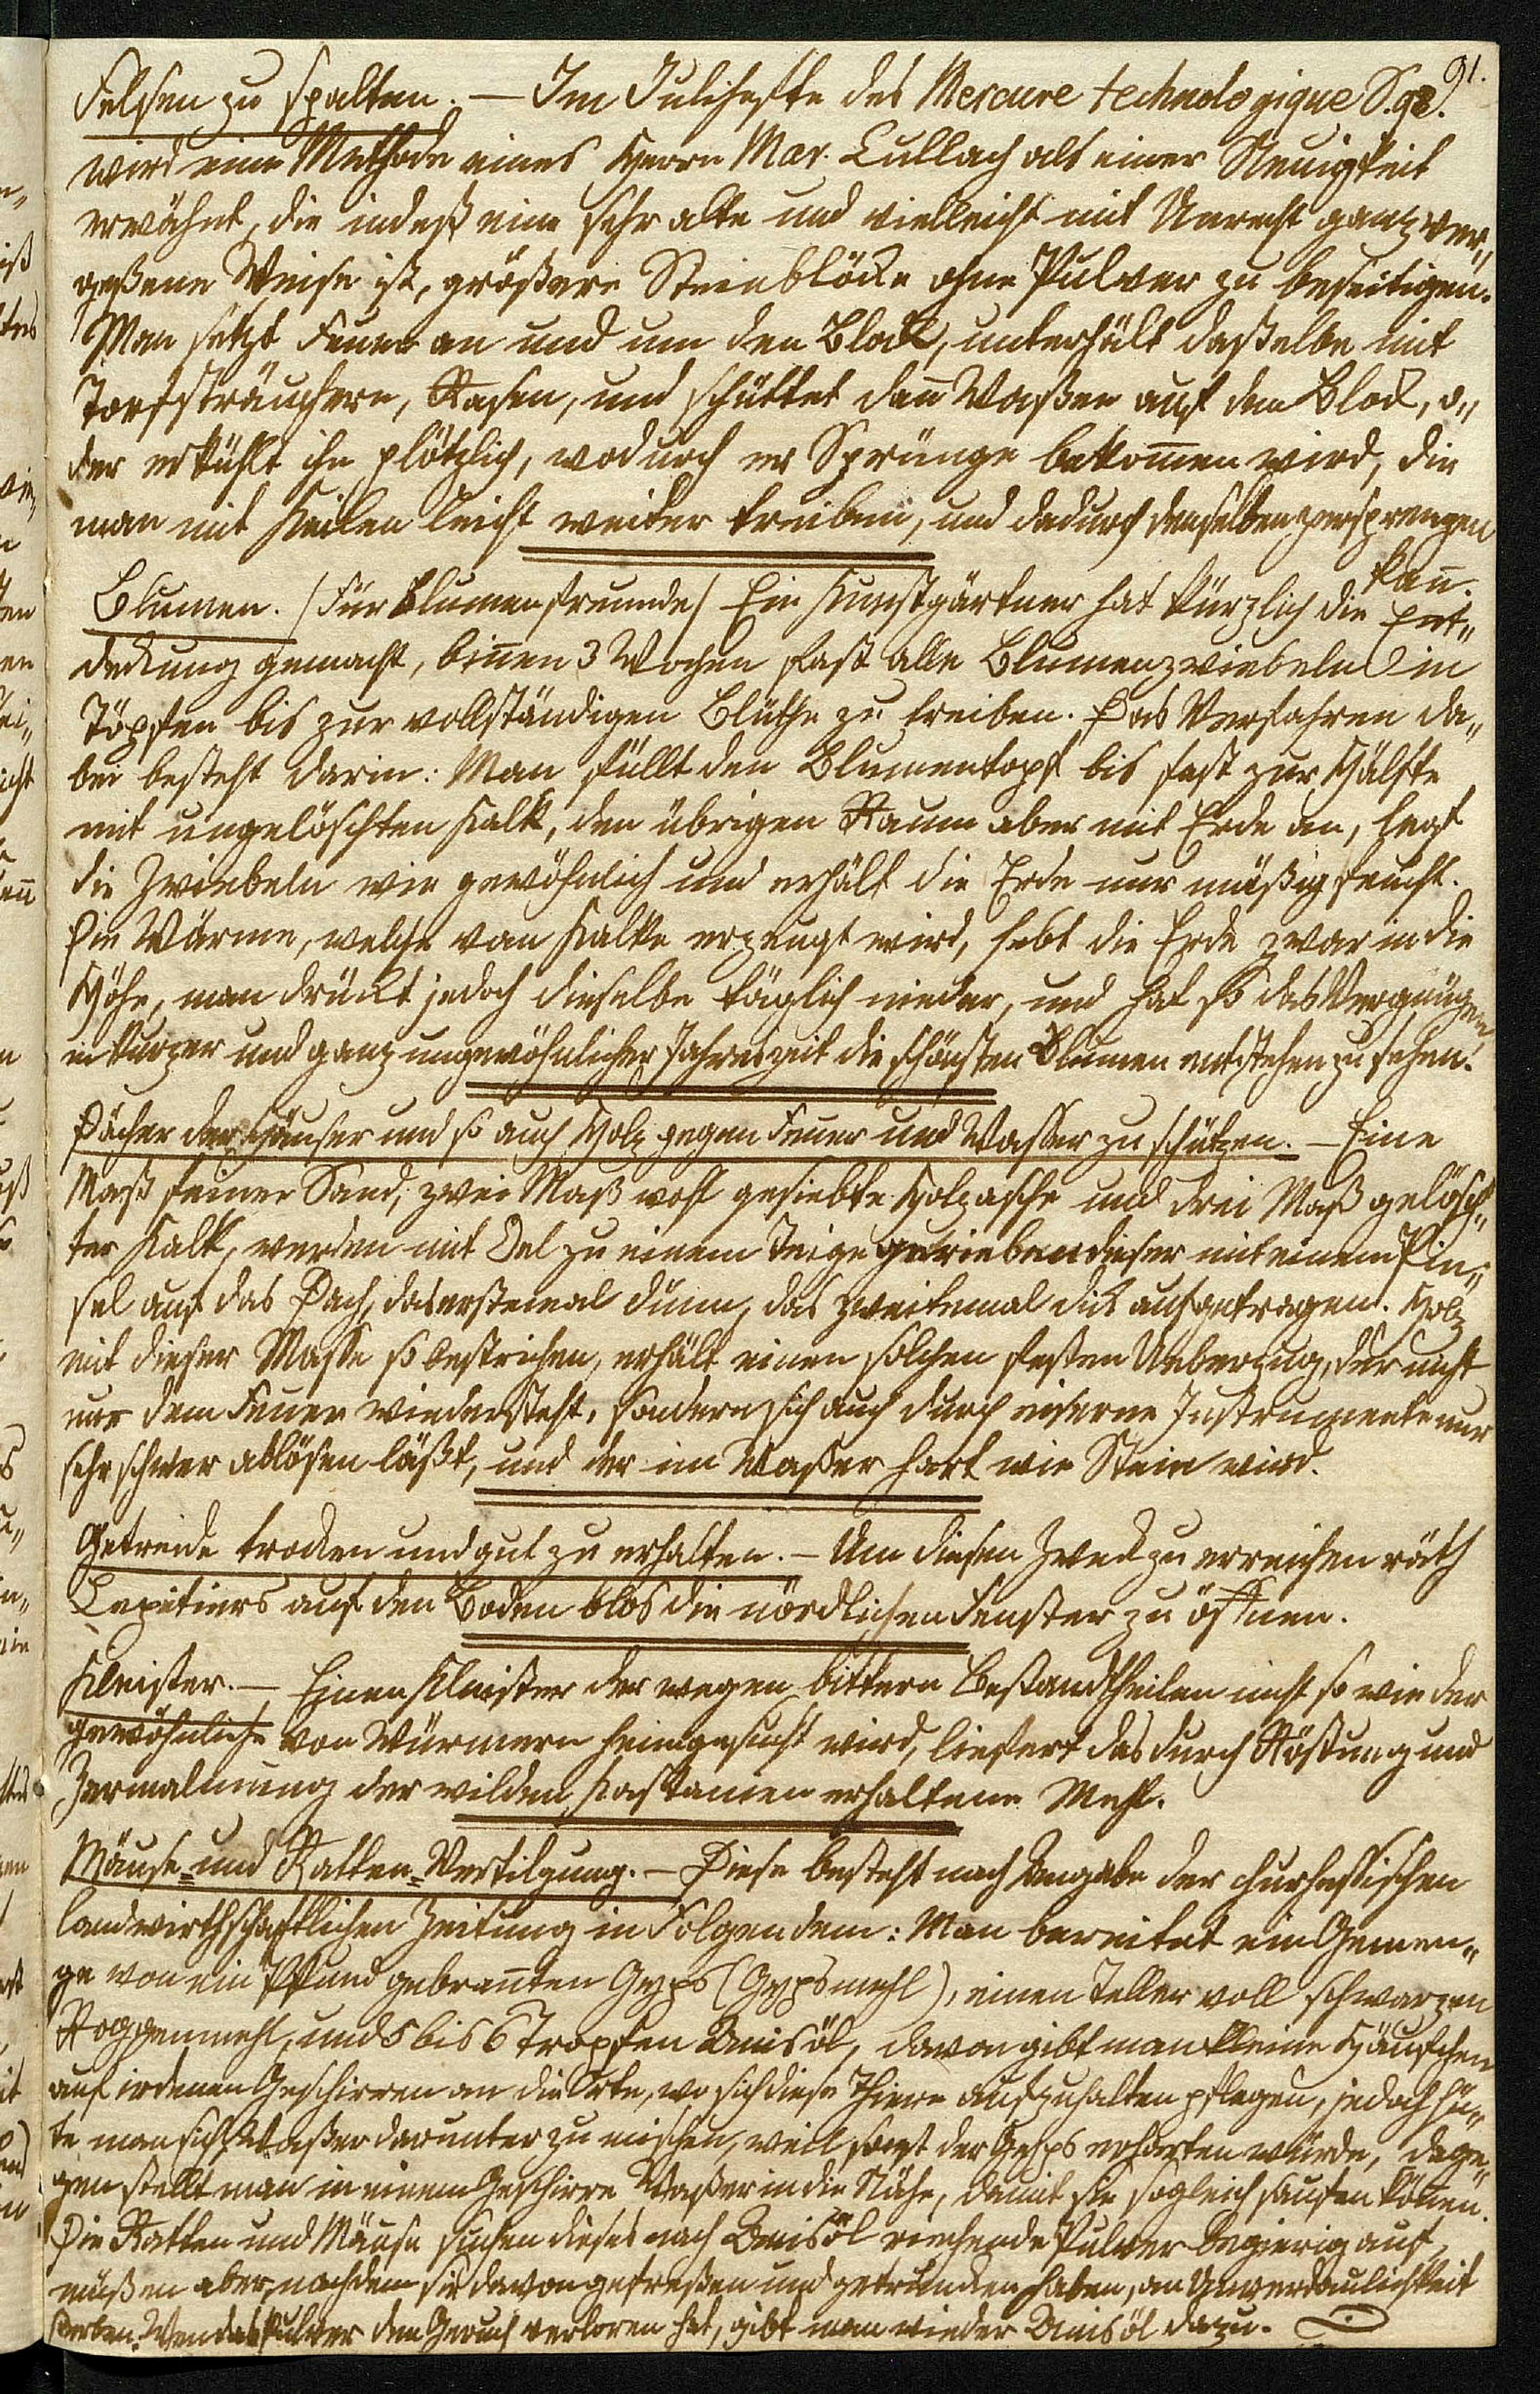 91.
Felsen zu spalten. — Im Julihefte des Mercure technologique S. 92.
wird eine Methode eines Herrn Mar. Cullach als einer Neuigkeit
erwähnt, die indeß eine sehr alte und vielleicht mit Unrecht ganz ver„
geßene Weise ist, größere Steinblöcke ohne Pulver zu beseitigen.
Man setzt Feuer an und um den Block, unterhält daßelbe mit
Torfsträuchern, Rasen, und schüttet dan̄ Waßer auf den Block, o„
der erkühlt ihn plötzlich, wodurch er Sprünge bekom̄en wird, die
man mit Keilen leicht weiter treiben, und dadurch denselben zersprengen
kan̄.
Blumen. (Für Blumenfreunde) Ein Kunstgärtner hat kürzlich die Ent„
deckung gemacht, bin̄en 3 Wochen fast alle Blumenzwiebeln in
Töpfen bis zur vollständigen Blüthe zu treiben. Das Verfahren da„
bei besteht darin: Man füllt den Blumentopf bis fast zur Hälfte
mit ungelöschten Kalk, den übrigen Raum aber mit Erde an, legt
die Zwiebeln wie gewöhnlich und erhält die Erde nur mäßig feucht.
Die Wärme, welche vom Kalke erzeugt wird, hebt die Erde zwar in die
Höhe, man drückt jedoch dieselbe täglich nieder, und hat so das Vergnügen,
in kurzer und ganz ungewöhnlicher Jahreszeit die schönsten Blumen entstehen zu sehen.
Dächer der Häuser und so auch Holz gegen Feuer und Wasser zu schützen. — Eine
Maß feiner Sand, zwei Maß wohl gesiebte Holzasche und drei Maß gelösch„
ter Kalk, werden mit Oel zu einem Teige gerieben dieser mit einem Pin„
sel auf das Dach, das erstemal dünn, das zweitemal dick aufgetragen. Holz
mit dieser Masse so bestrichen, erhält einen solchen festen Ueberzug, der nicht
nur dem Feuer wiedersteht, sondern sich auch durch eiserne Instrumente nur
sehr schwer ablösen läßt, und der im Waßer hart wie Stein wird.
Getreide trocken und gut zu erhalten. — Um diesen Zweck zu erreichen räth
auf den Boden blos die nördlichen Fenster zu öffnen.
Kleister. — Einen Kleister der wegen bittern Bestandtheilen nicht so wie der
gewöhnliche von Würmern heimgesucht wird, liefert das durch Röstung und
Zermalmung der wilden Kastanien erhaltene Mehl.
Mäuse- und Ratten-Vertilgung. — Diese besteht nach Angabe der churhessischen
landwirthschaftlichen Zeitung in Folgendem: Man bereitet ein Gemen„
ge von ein Pfund gebran̄ten Gyps (Gypsmehl), einen Teller voll schwarzen
Roggenmehl, und 5 bis 6 Tropfen Anisöl, davon gibt man kleine Häufchen
auf irdenen Geschirren an die Orte, wo sich diese Thiere aufzuhalten pflegen, jedoch hü„
te man sich, Waßer darunter zu mischen, weil sonst der Gyps erharten würde, dage„
gen stellt man in einem Geschirre Waßer in die Nähe, damit sie sogleich saufen kön̄en.
Die Ratten und Mäuse suchen dieses nach Anisöl riechende Pulver begierig auf,
müßen aber, nachdem sie davon gefreßen und getrunken haben, an Unverdaulichkeit
sterben. Wen das Pulver den Geruch verloren hat, gibt man wieder Anisöl dazu.